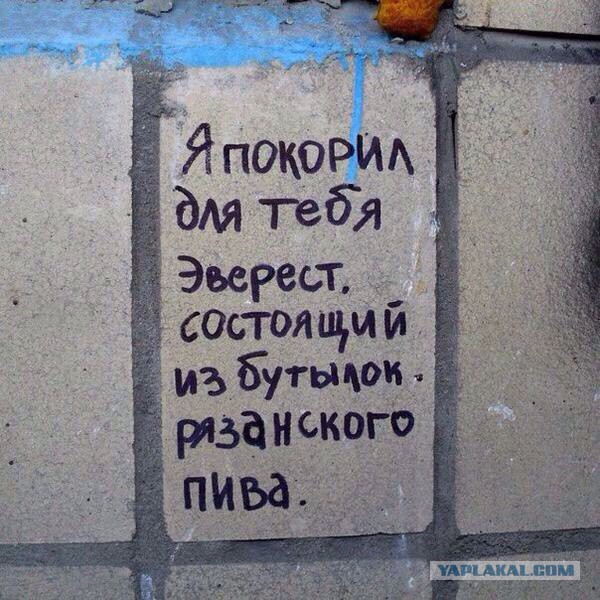 Я покорил
для тебя
Эверест,
состоящий
из бутылок
рязанского
пива.
YAPLAKAL.COM